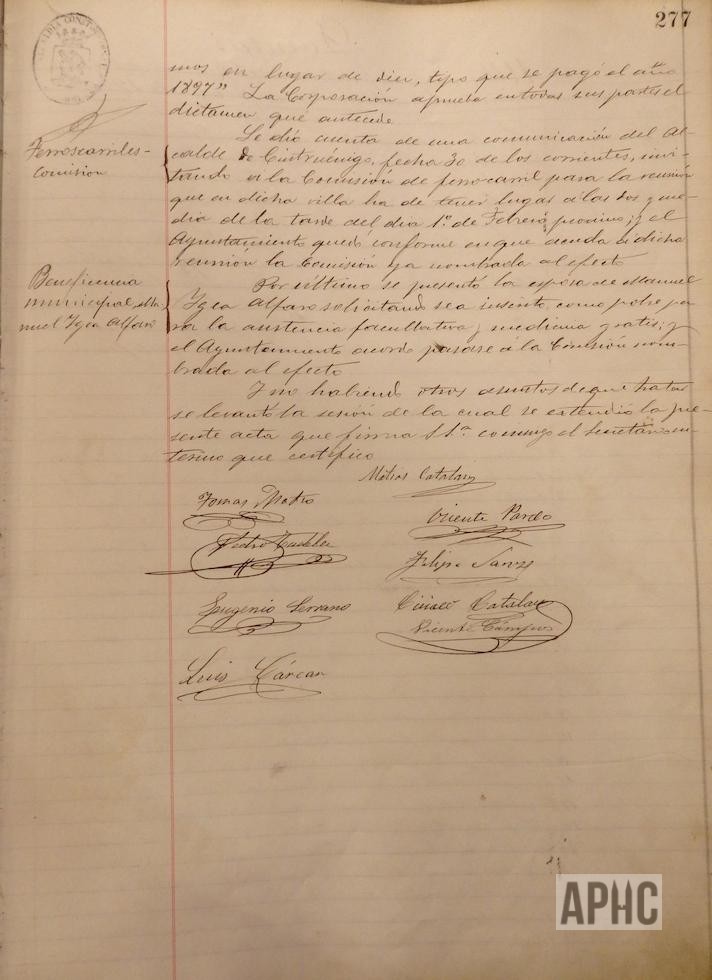 277
mos en lugar de diez, tipo que se pagó el año
1897" La Corporación aprueba en todas sus partes el
dictamen que antecede
Ferrocarriles-
Comision
Se dió cuenta de una comunicación del Al-
calde de Cintruénigo, fecha 30 de los corrientes, invi-
tando a la Comisión de ferrocarril para la reunión
que en dicha villa ha de tener lugar a las dos y me-
dia de la tarde del día 1º de Febrero próximo; y el
Ayuntamiento quedó conforme en que acuda a dicha
reunión la Comisión ya nombrada al efecto
Beneficencia
municipal, Ma-
nuel Ygea Alfaro
Por último se presentó la esposa de Manuel
Ygea Alfaro solicitando sea inscrito como pobre pa-
ra la asistencia facultativa y medicina gratis; y
el Ayuntamiento acordó pasase a la Comisión nom-
brada al efecto
Y no habiendo otros asuntos de que tratar
se levantó la sesión de la cual se extendió la pre-
sente acta que firma S.Sª conmigo el Secretario in-
terino que certifico
Matias Catalan
Tomas Matro
Vicente Pardo
Pedro Tudela
Felipe
Eugenio Serrano
Catalan
Vicente Campos
Luis Cárcar
APHC